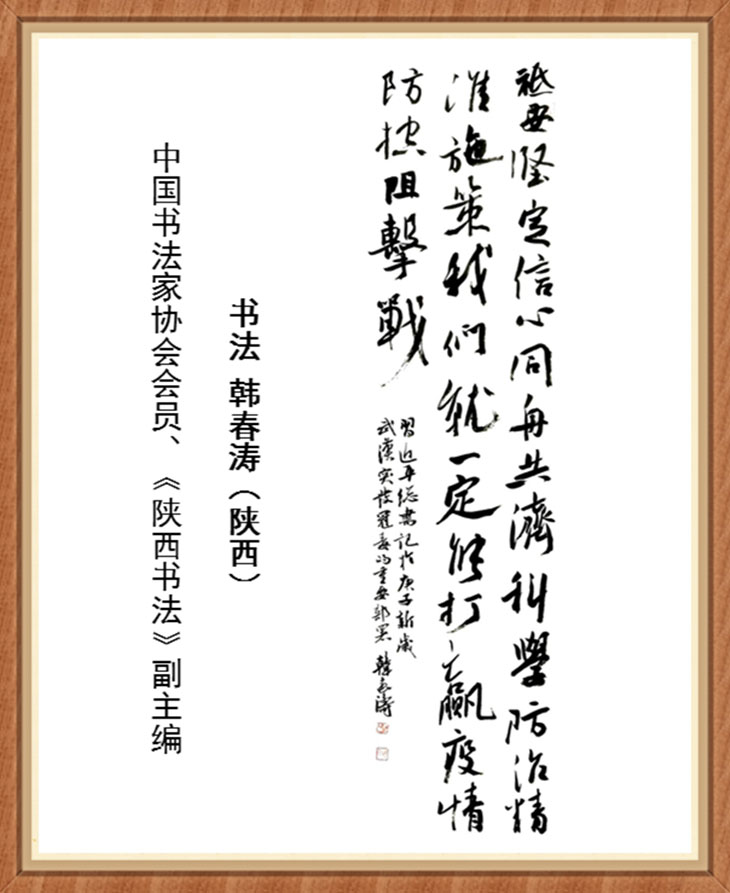 祗要堅定信心同舟共濟科學防治精
准施策我们就一定能打赢疫情
防控阻擊戰
習近平総書记於庚子新歲
武漢突發冠毒的重要部署 韓春涛
书法 韩春涛（陕西）
中国书法家协会会员、《陕西书法》副主编